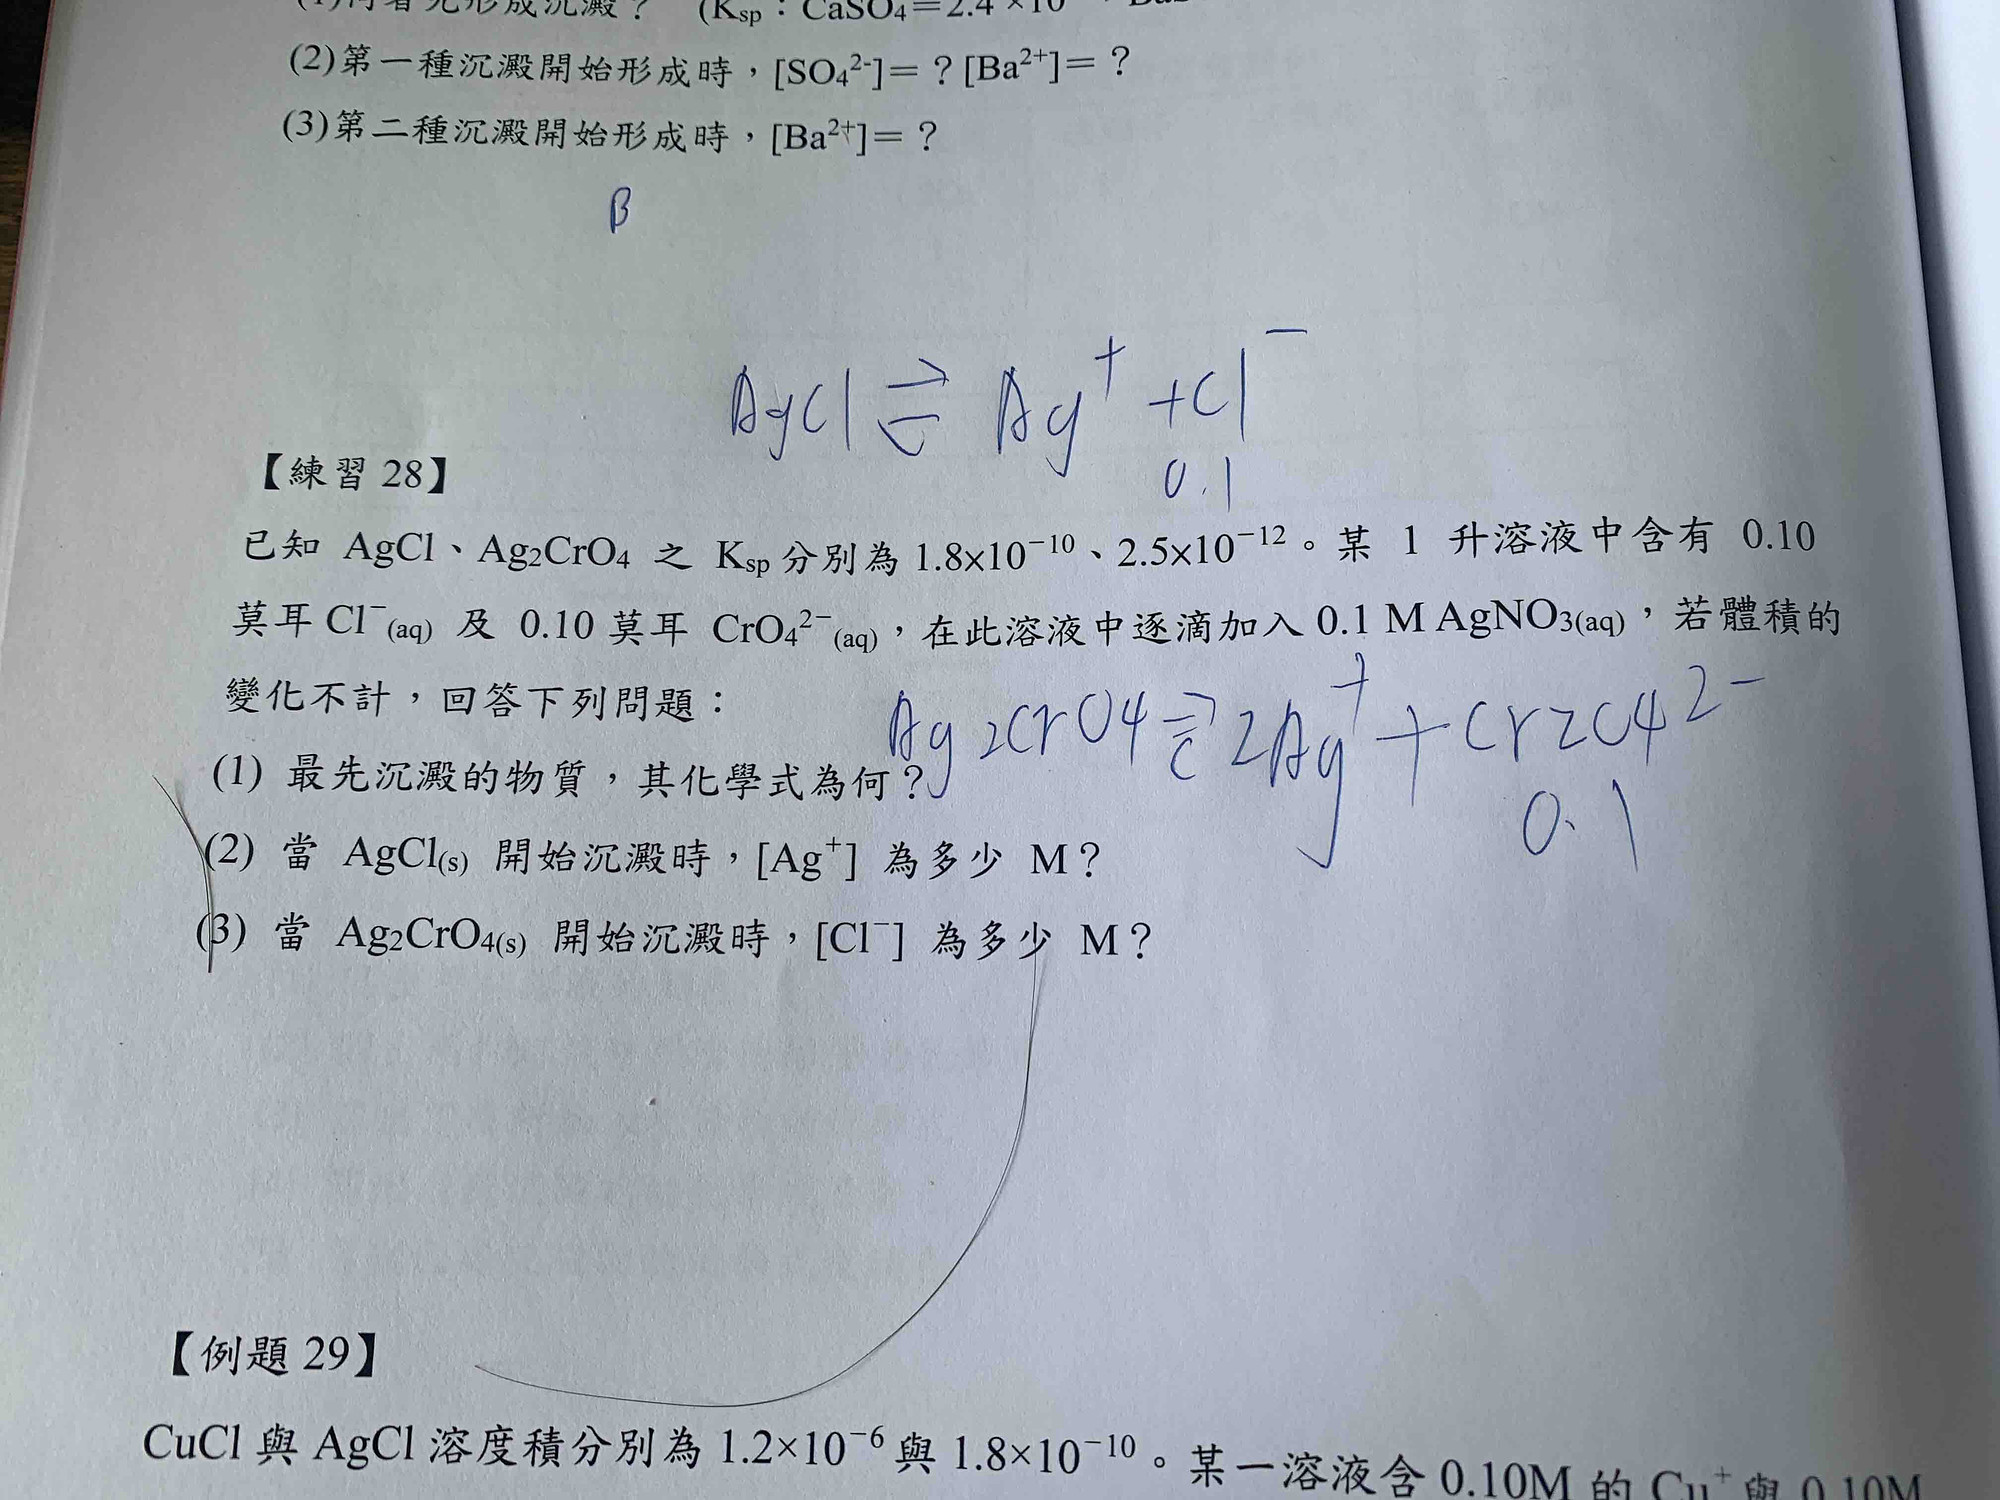 (2)第一種沉澱開始形成時，[SO₄²⁻]＝？[Ba²⁺]＝？
(3)第二種沉澱開始形成時，[Ba²⁺]＝？
β
AgCl ⇌ Ag⁺ + Cl⁻
0.1
【練習 28】
已知 AgCl、Ag₂CrO₄ 之 Ksp 分別為 1.8×10⁻¹⁰、2.5×10⁻¹²。某 1 升溶液中含有 0.10
莫耳 Cl⁻(aq) 及 0.10 莫耳 CrO₄²⁻(aq)，在此溶液中逐滴加入 0.1 M AgNO₃(aq)，若體積的
變化不計，回答下列問題：
Ag2CrO4 ⇌ 2Ag⁺ + Cr2O4²⁻
0.1
(1) 最先沉澱的物質，其化學式為何？
(2) 當 AgCl(s) 開始沉澱時，[Ag⁺] 為多少 M？
(3) 當 Ag₂CrO₄(s) 開始沉澱時，[Cl⁻] 為多少 M？
【例題 29】
CuCl 與 AgCl 溶度積分別為 1.2×10⁻⁶ 與 1.8×10⁻¹⁰。某一溶液含 0.10M 的 Cu⁺ 與 0.10M